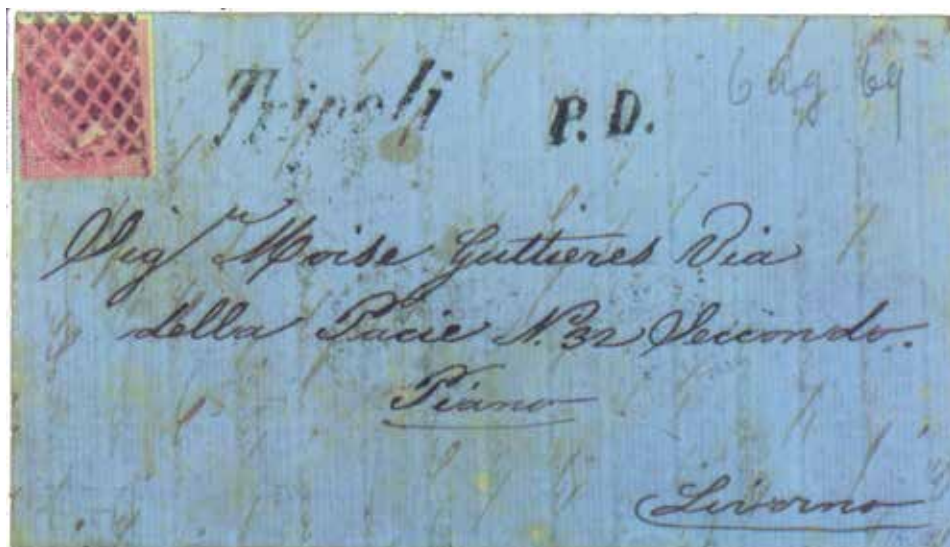 Tripoli P. D. 6 Ag 69
Sigr Moise Guttieres Via
della Pacie N. 32 Seccondo
Piano
Livorno